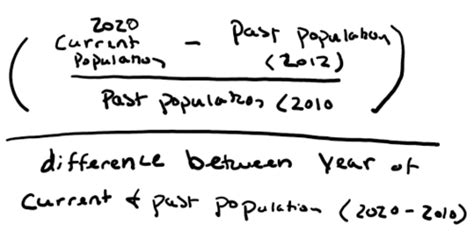 2020
Current Population − Past population (2012)
Past population (2010
difference between year of
Current & past population (2020-2010)